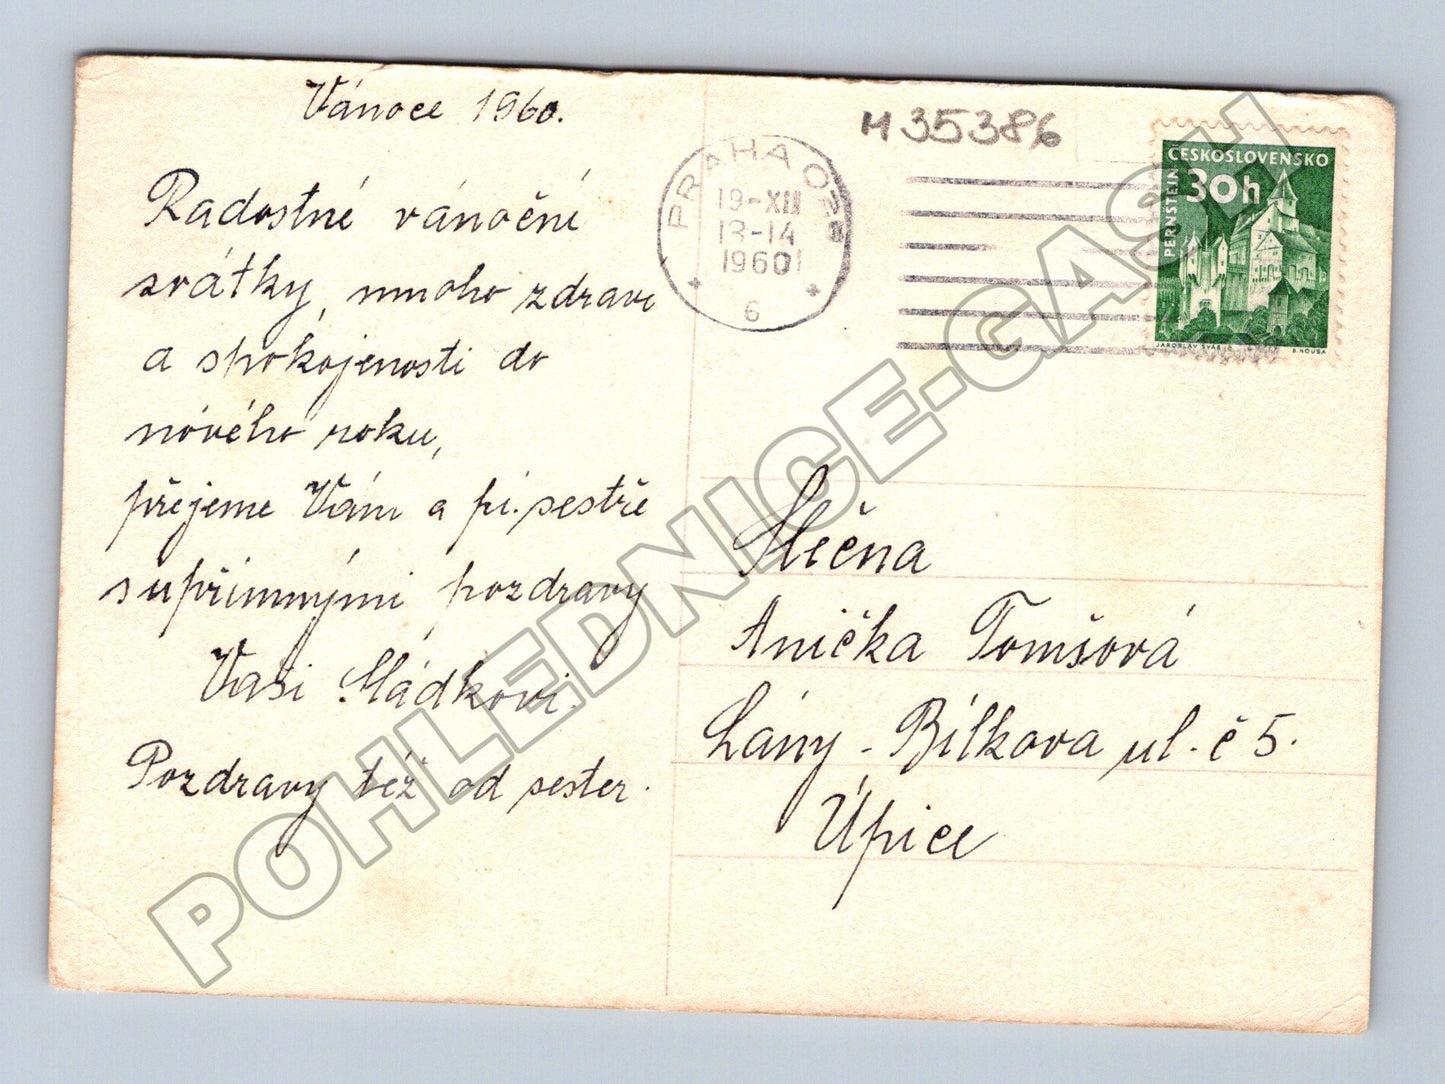 Vánoce 1960.
Radostné vánoční
svátky, mnoho zdraví
a spokojenosti do
nového roku,
přejeme Vám a pí. sestře
s upřímnými pozdravy
Vaši Sládkovi.
Pozdravy též od sester.
M 35386
PRAHA 025
19-XII
13-14
1960
6
ČESKOSLOVENSKO
30h
PERNŠTEJN
JAROSLAV ŠVÁB
B. HOUSA
Slečna
Anička Tomšová
Lány - Bílkova ul. č 5.
Úpice
POHLEDNICE-GASH